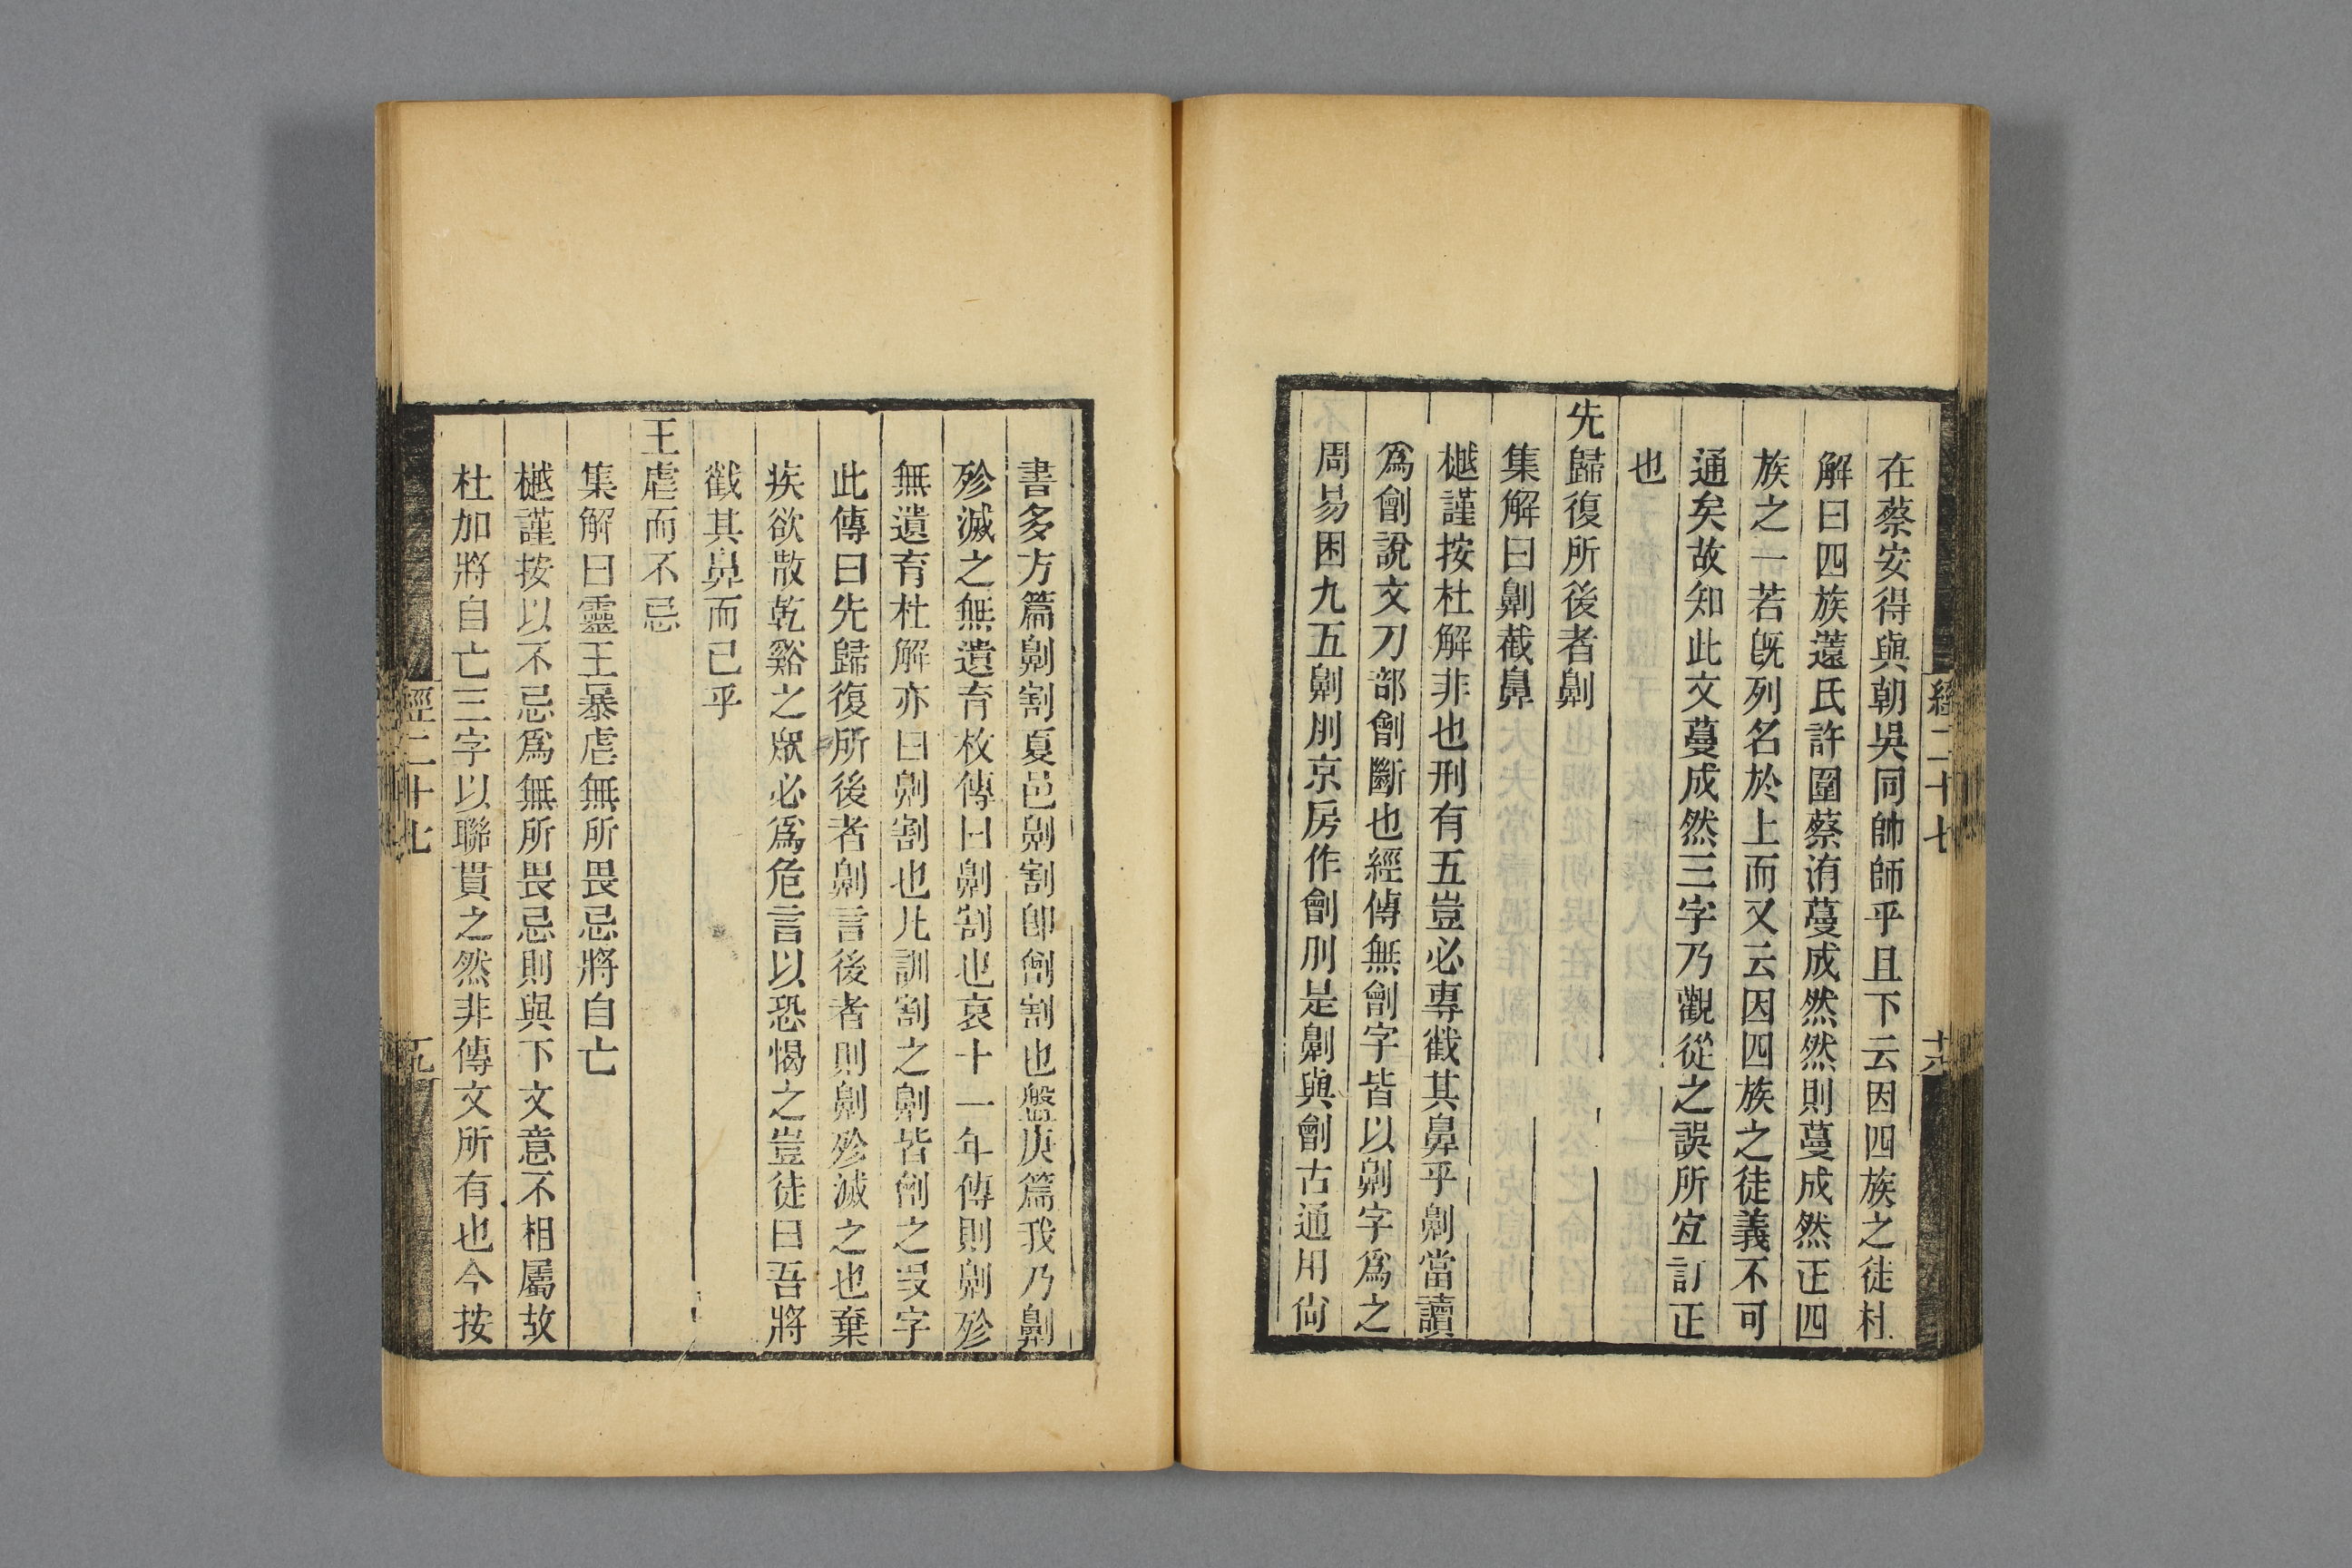 在蔡安得與朝吳同帥師乎且下云因四族之徒杜
解曰四族薳氏許圍蔡洧蔓成然然則蔓成然正四
族之一若旣列名於上而又云因四族之徒義不可
通矣故知此文蔓成然三字乃觀從之誤所宐訂正
也
先歸復所後者劓
集解曰劓截鼻
樾謹按杜解非也刑有五豈必專截其鼻乎劓當讀
爲劊說文刀部劊斷也經傳無劊字皆以劓字爲之
周易困九五劓刖京房作劊刖是劓與劊古通用尙
書多方篇劓割夏邑劓割卽劊割也盤庚篇我乃劓
殄滅之無遺育枚傳曰劓割也哀十一年傳則劓殄
無遺育杜解亦曰劓割也凡訓割之劓皆劊之叚字
此傳曰先歸復所後者劓言後者則劓殄滅之也棄
疾欲散乾谿之眾必爲危言以恐愒之豈徒曰吾將
截其鼻而已乎
王虐而不忌
集解曰靈王暴虐無所畏忌將自亡
樾謹按以不忌爲無所畏忌則與下文意不相屬故
杜加將自亡三字以聯貫之然非傳文所有也今按
經二十七